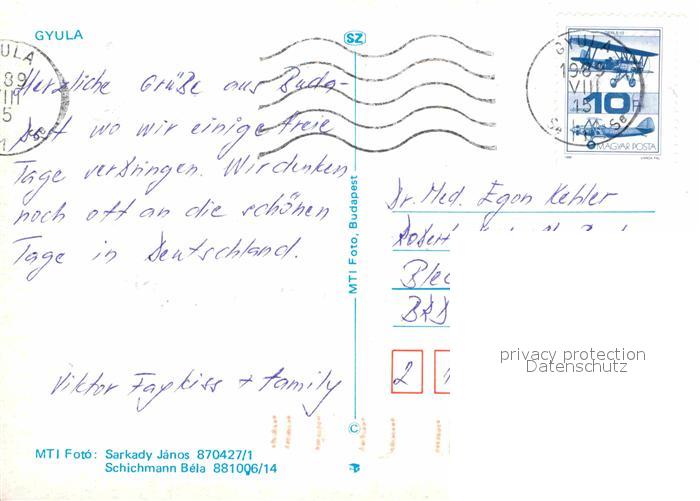 GYULA
SZ
GYULA
1989
VIII
15
10 F
MAGYAR POSTA
Herzliche Grüße aus Buda-
pest wo wir einige freie
Tage verbringen. Wir denken
noch oft an die schönen
Tage in Deutschland.
Viktor + family
MTI Foto, Budapest
©
Dr. Med. Egon Kehler
Robert
BRD
2
privacy protection
Datenschutz
MTI Fotó: Sarkady János 870427/1
Schichmann Béla 881006/14